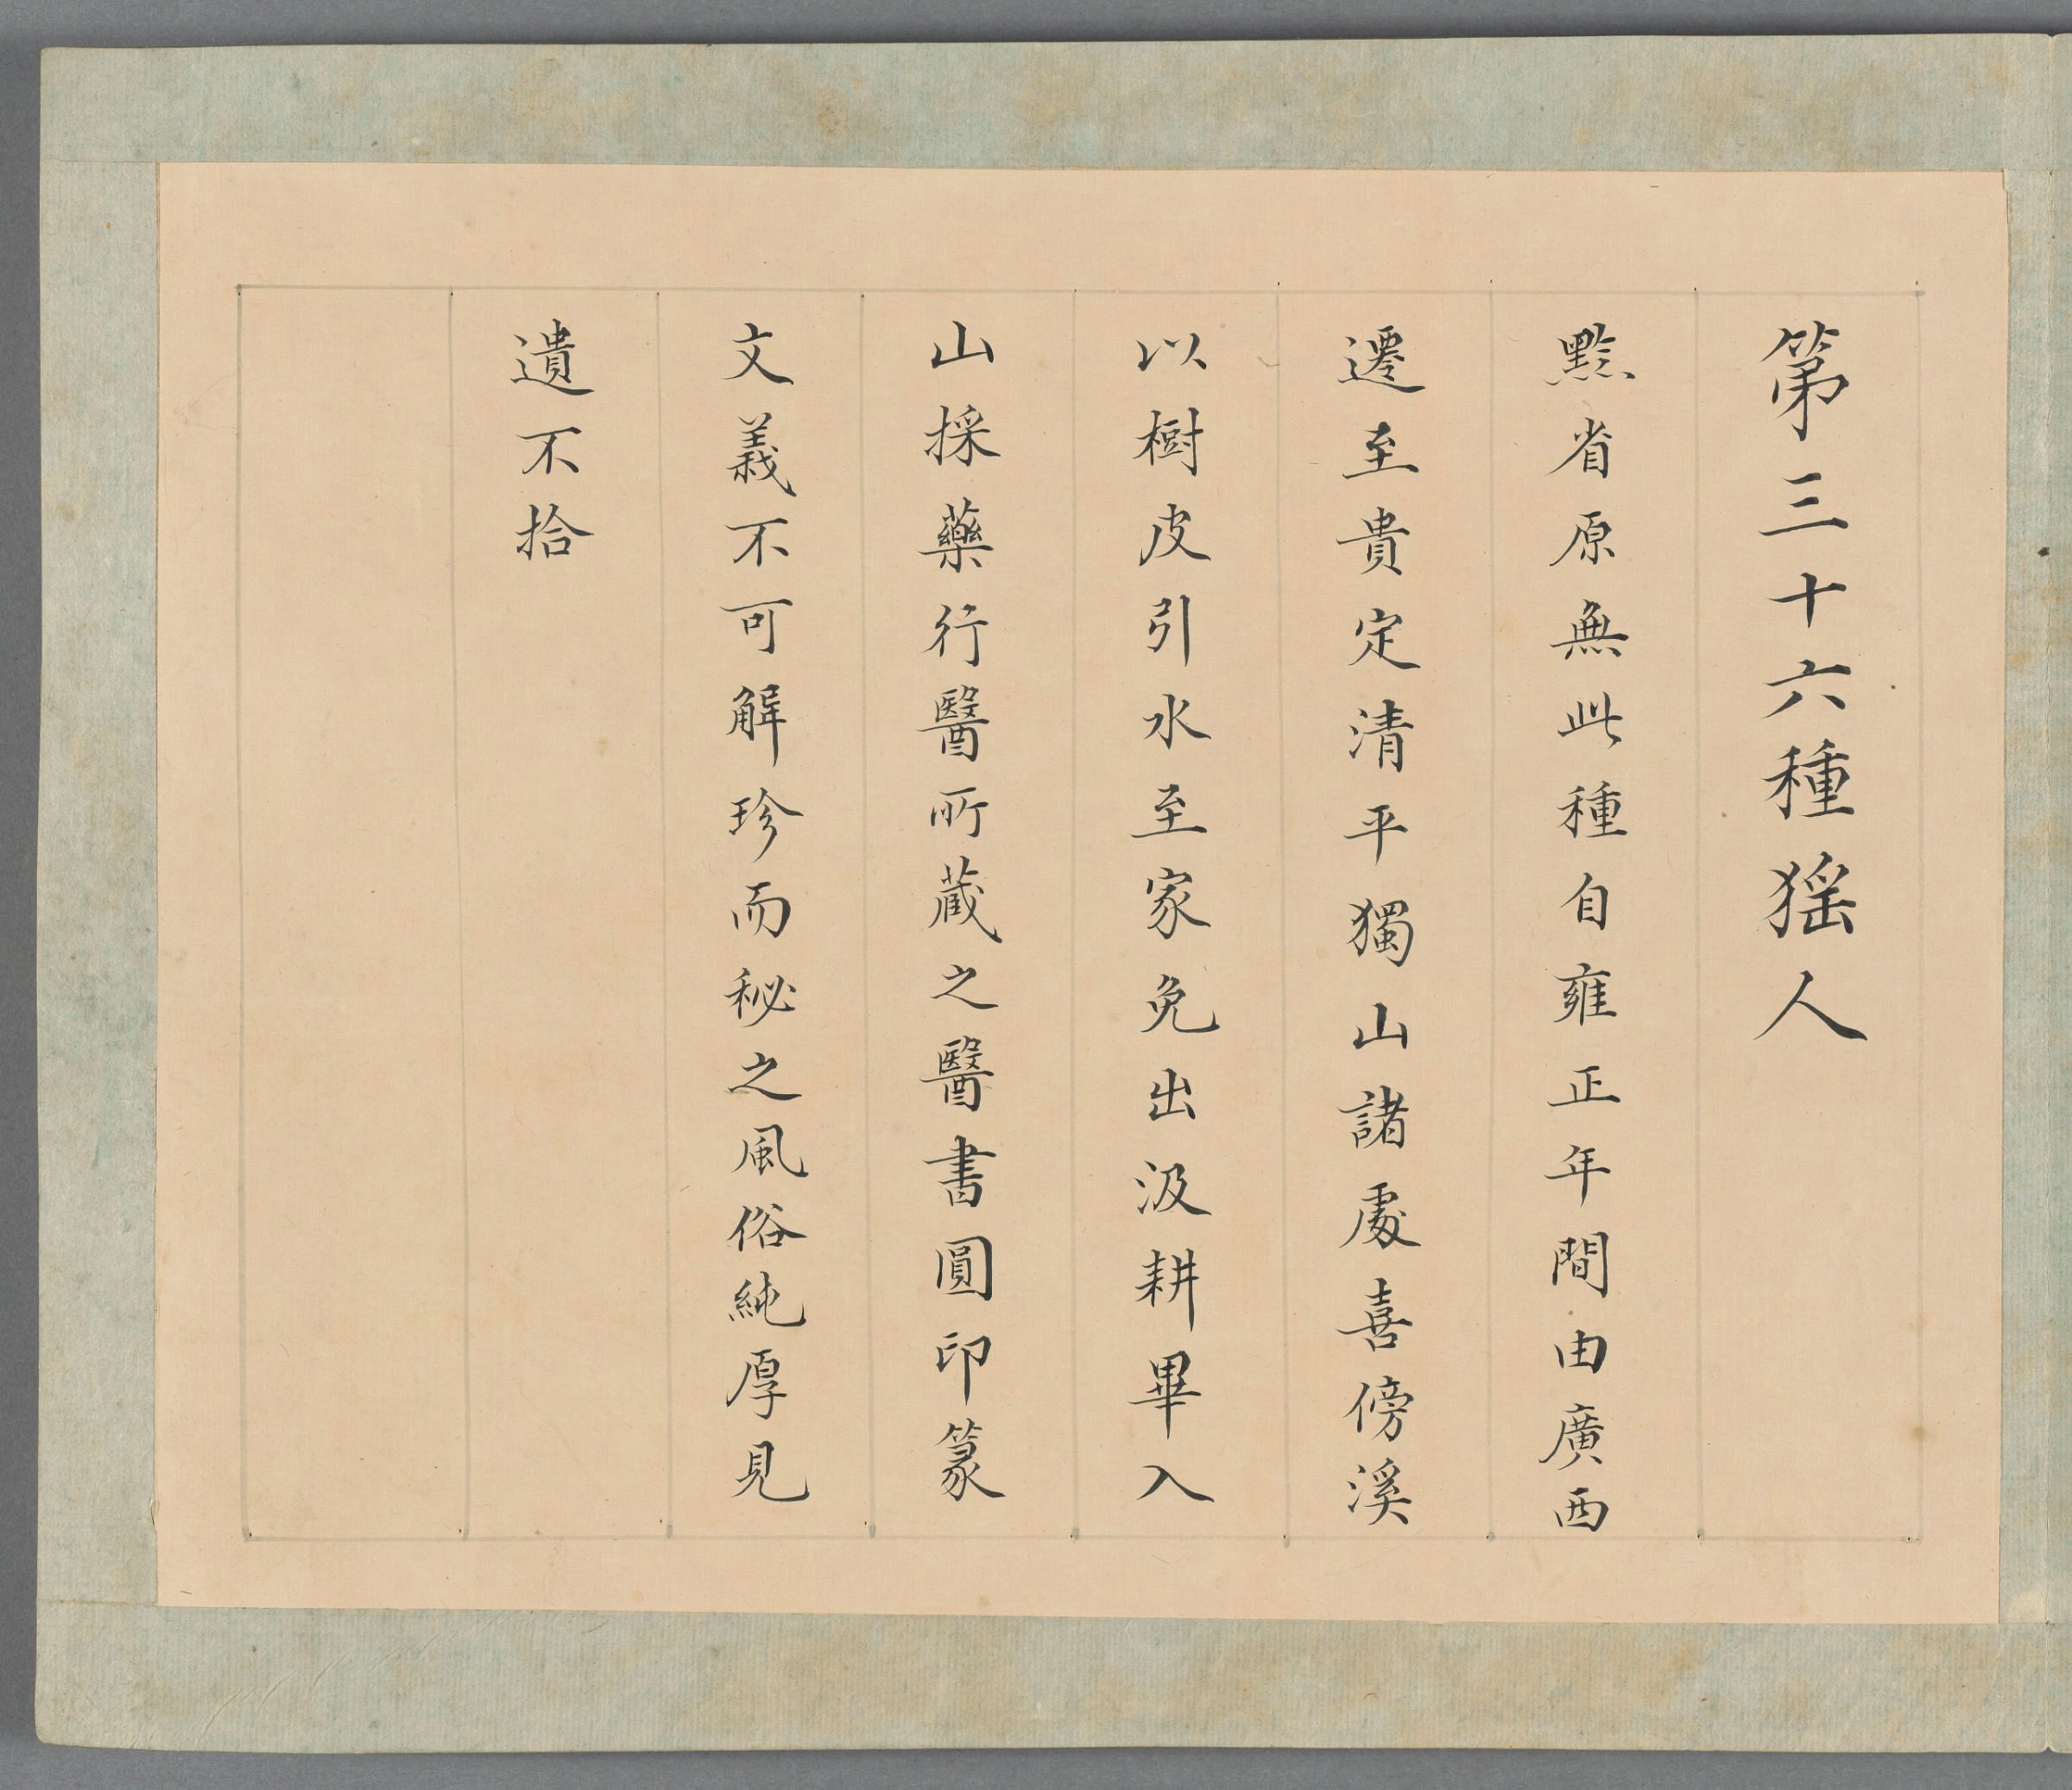 第三十六種猺人
黔省原無此種自雍正年間由廣西
遷至貴定清平獨山諸處喜傍溪
以樹皮引水至家免出汲耕畢入
山採藥行醫所蔵之醫書圓印篆
文義不可解珍而秘之風俗純厚見
遺不拾